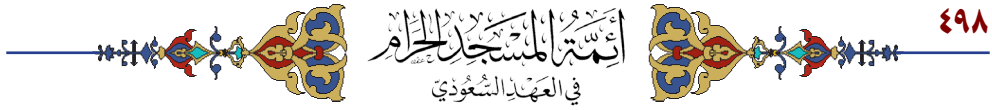 ٤٩٨
أَئِمَّةُ المَسْجِدِ الحَرَامِ
في العَهْدِ السُّعُوْدِيّ